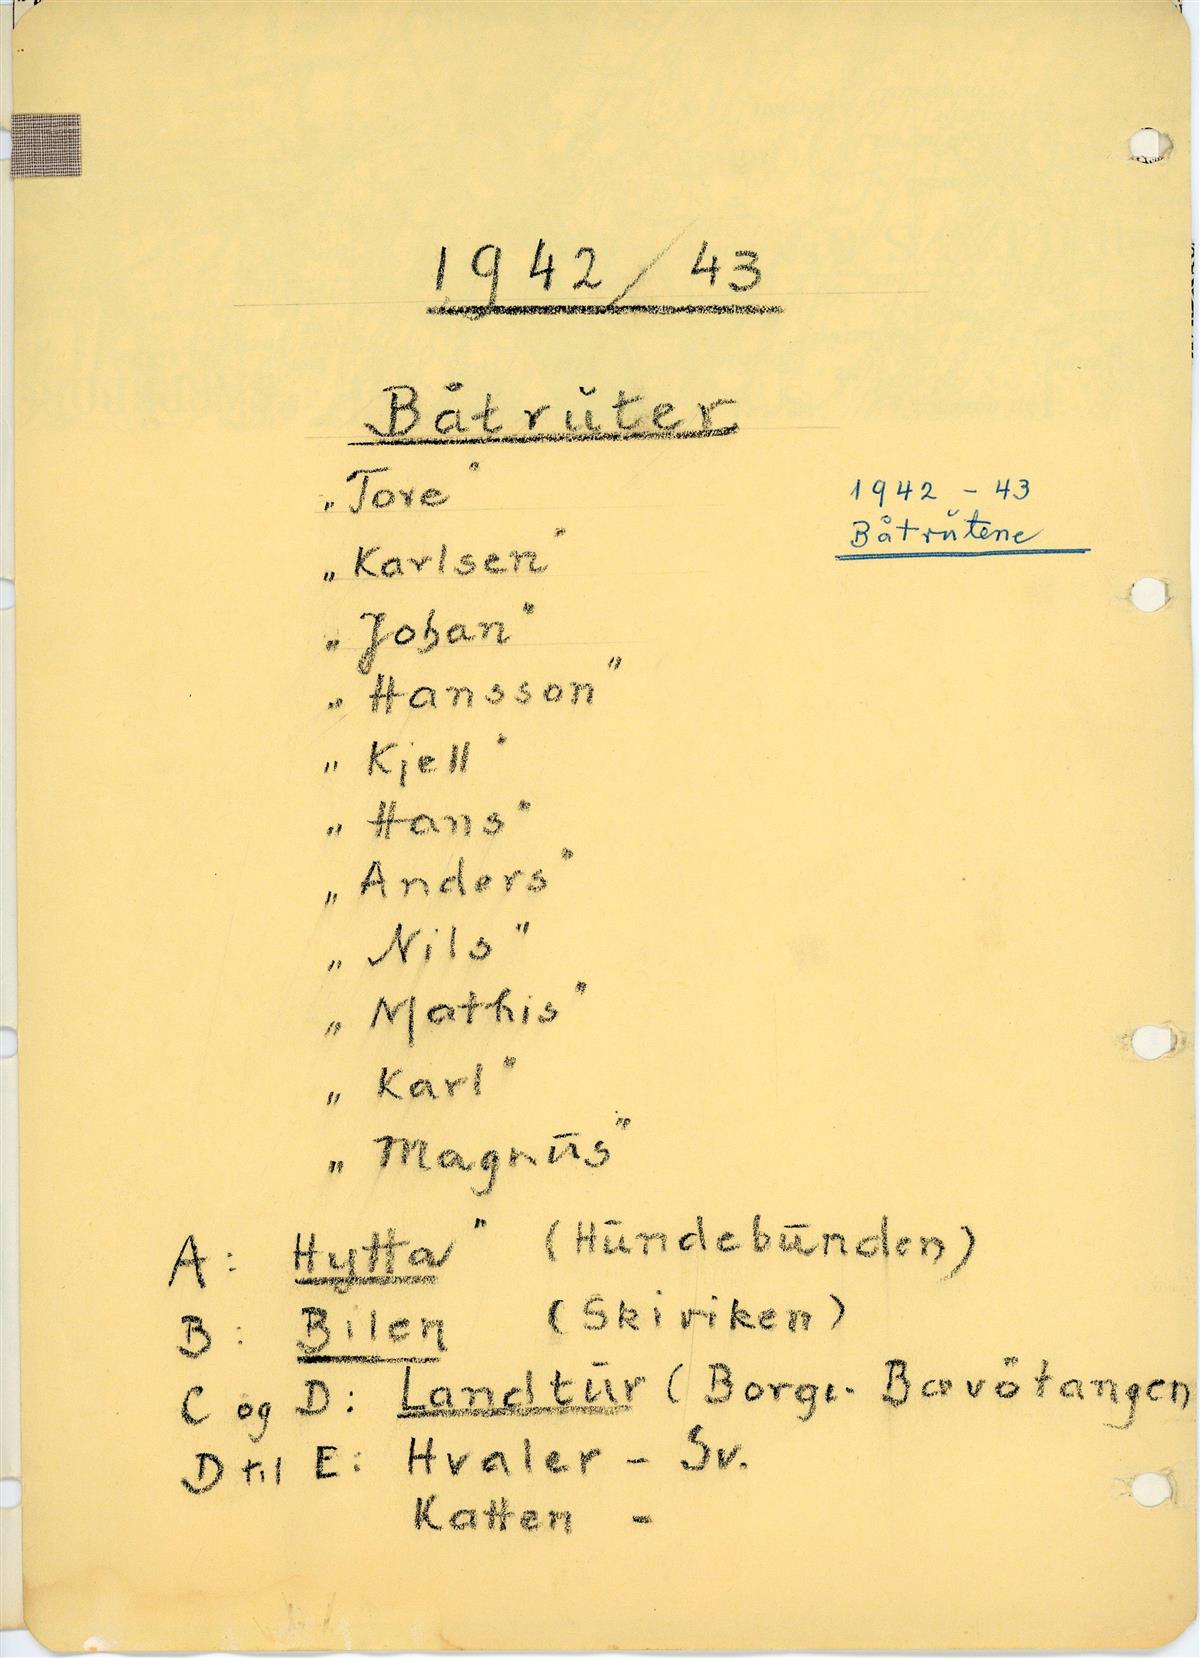 1942/43
Båtrŭter
„Tore"
1942 - 43
Båtrŭtene
„Karlsen"
„Johan"
„Hansson"
„Kjell"
„Hans"
„Anders"
„Nils"
„Mathis"
„Karl"
„Magnūs"
A: Hytta" (Hūndebūnden)
B: Bilen (Skiviken)
C og D: Landtūr (Borge - Bevötangen
D til E: Hvaler - Sv.
Katten -